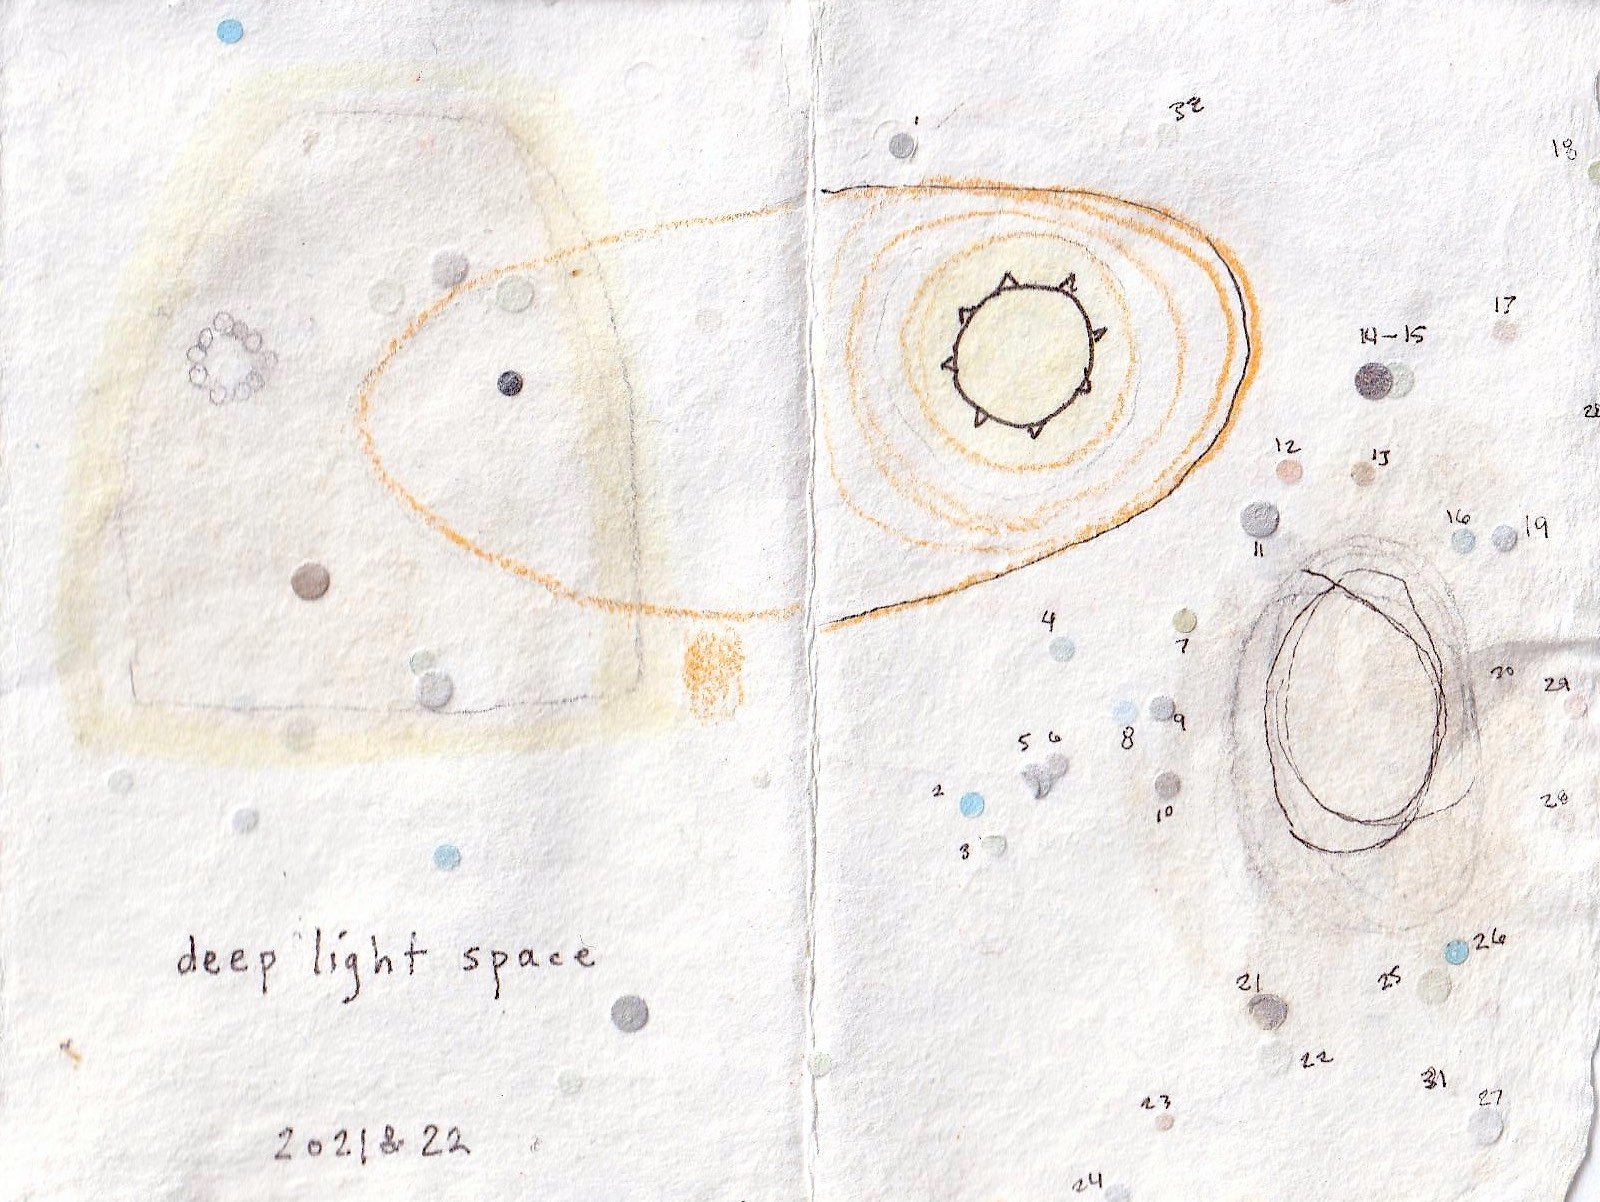 deep light space
2021 & 22
1
32
18
17
14-15
12
13
11
16
19
4
7
30
29
8
9
5
6
2
10
28
3
26
25
21
22
31
27
23
24